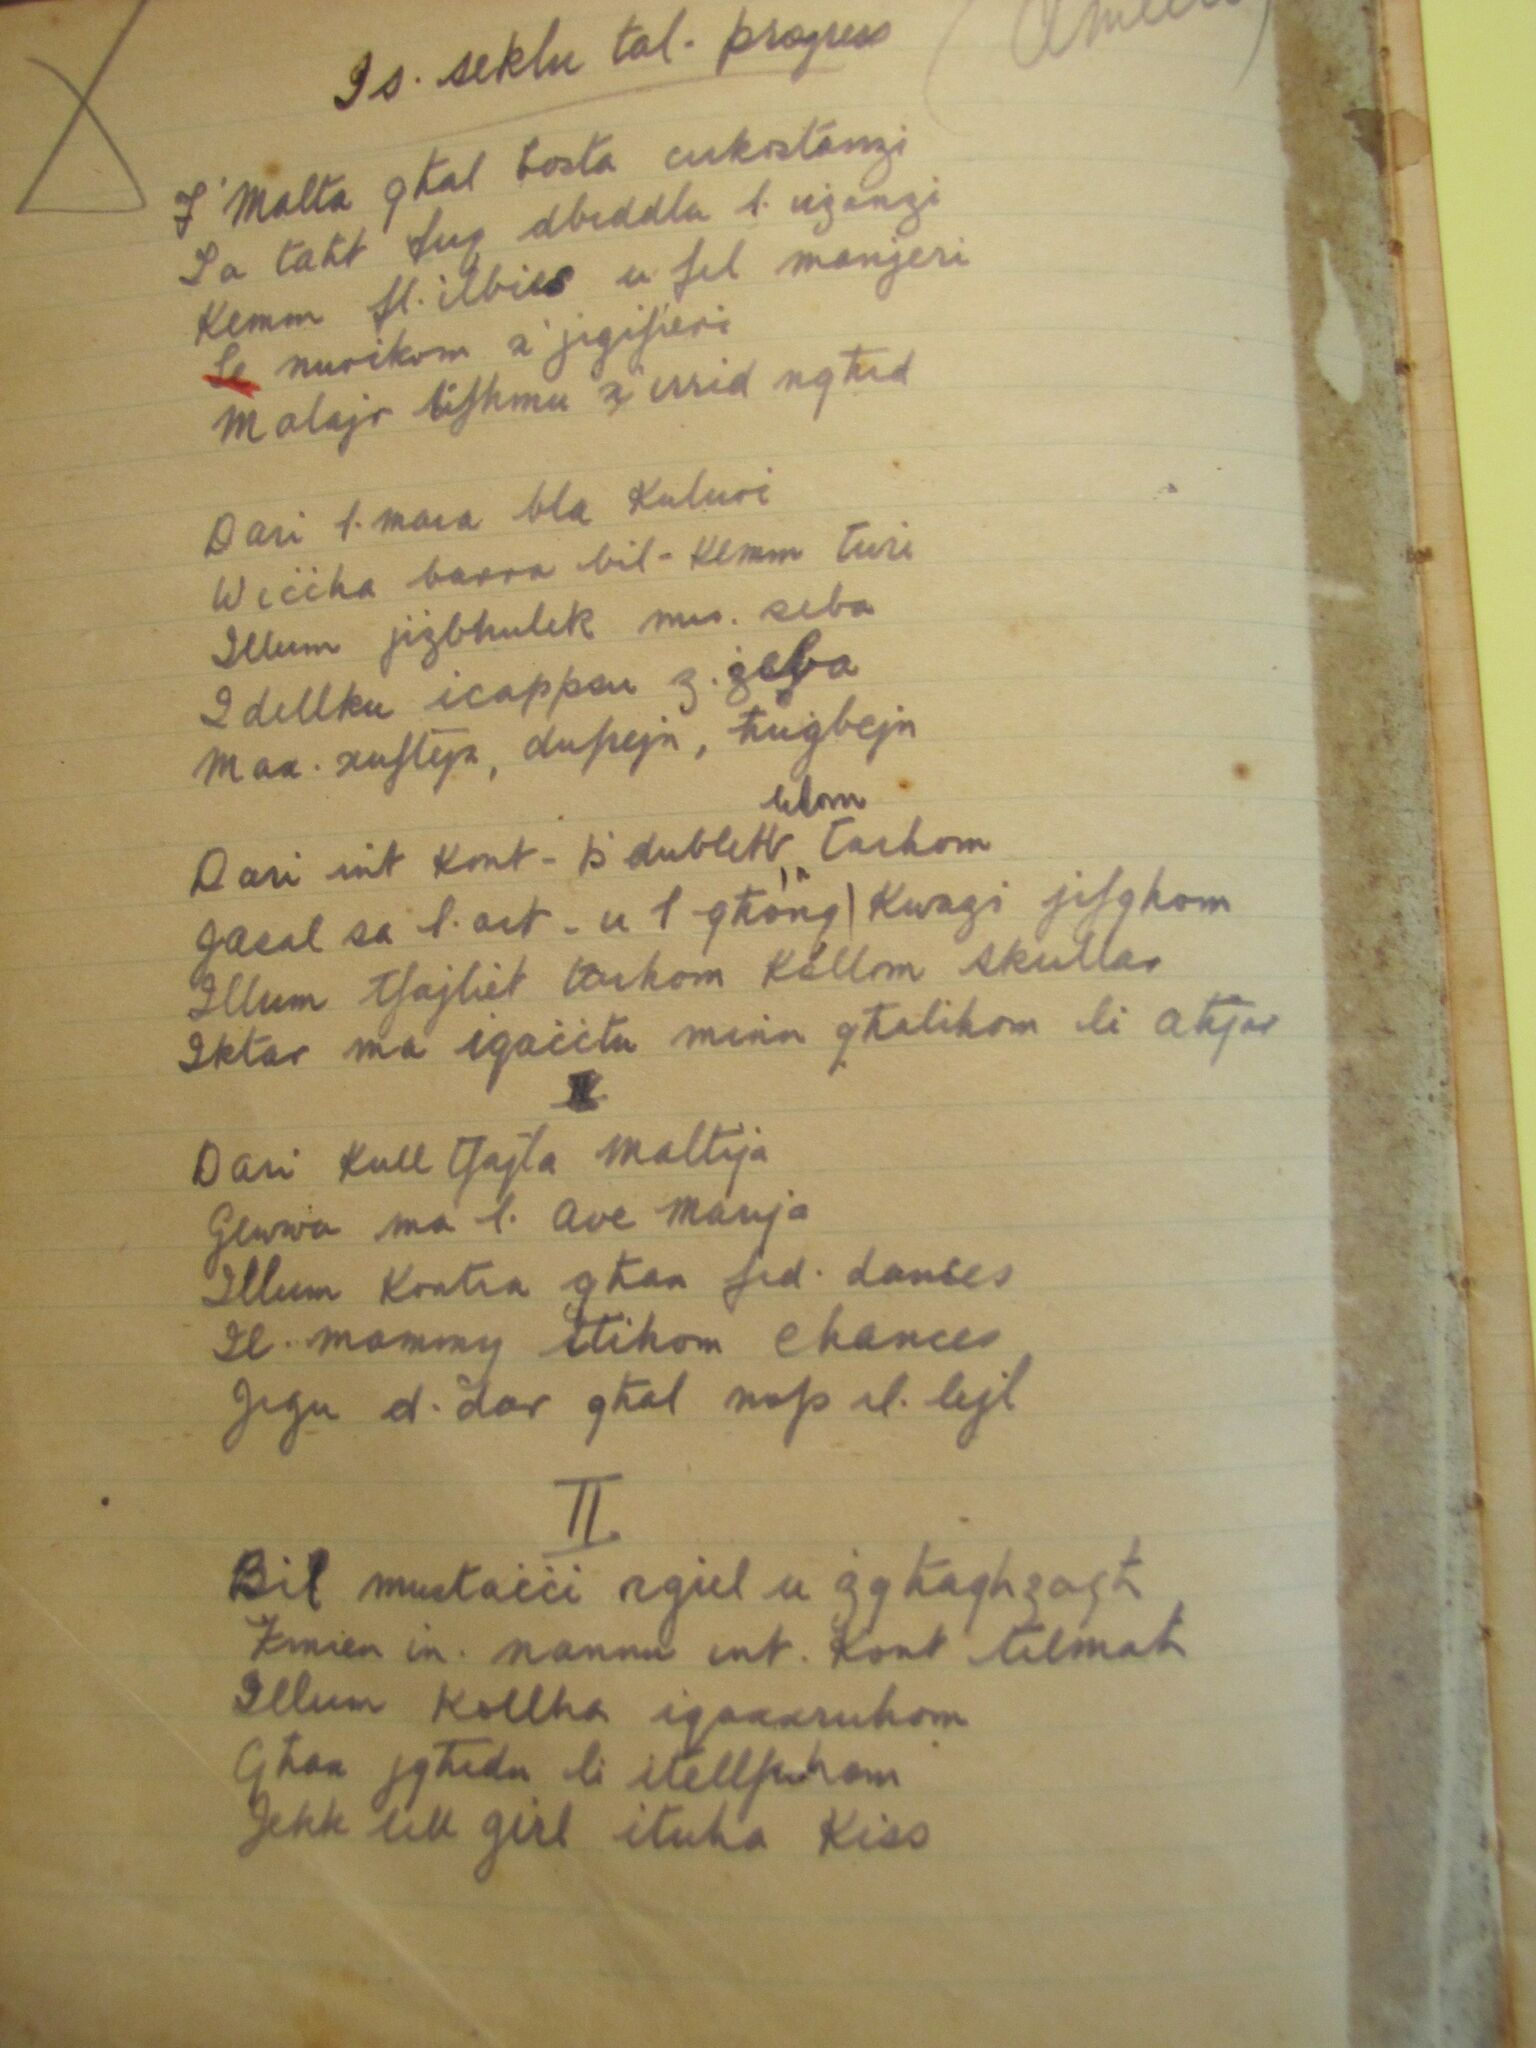 Is. seklu tal- progress
F'Malta għal bosta cirkostanzi
Sa taħt fuq dbiddlu l. użanzi
Kemm fl. ilbies u fel manjeri
Se nurikom x'jigifieri
Malajr tifhmu x'irrid ngħid
Dari l. mara bla kuluri
Wiċċha barra bil- kemm turi
Illum jiżbħulek mis. seba
Idellku icappsu ż. żeba
Max. xufftejn, dufrejn, ħuġbejn
Dari int kont- tiddubletti lilom tarhom
Jaeal sa l. art - u l għonq kwazi jifghom
Illum tfajliet tarhom kollom skullar
Iktar ma igaċċtu minn għalihom li aħjar
Dari kull tfajla Maltija
Gewwa ma l. Ave Marija
Illum kontra għax fid. dances
Il. mammy ttihom chances
Jigu d. dar għal nofs il. lejl
II
Bil mustaċċi rġiel u żgħagħżagħ
Żmien in. nannu int. kont tilmaħ
Illum kollha iqaxxruhom
Għax jgħidu li itellfuhom
Jekk lill girl ituha kiss